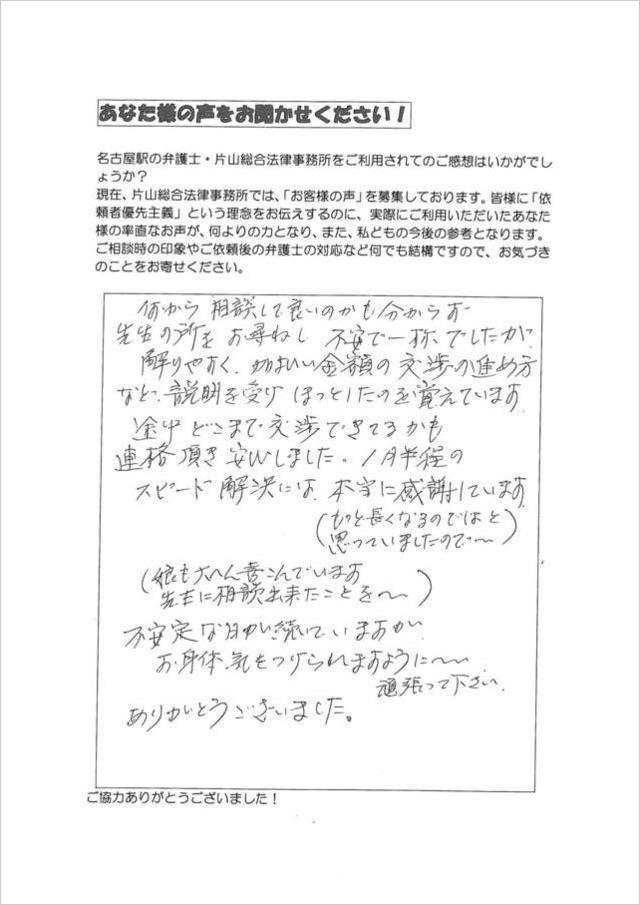 あなた様の声をお聞かせください！
名古屋駅の弁護士・片山総合法律事務所をご利用されてのご感想はいかがでし
ょうか？
現在、片山総合法律事務所では、「お客様の声」を募集しております。皆様に「依
頼者優先主義」という理念をお伝えするのに、実際にご利用いただいたあなた
様の率直なお声が、何よりの力となり、また、私どもの今後の参考となります。
ご相談時の印象やご依頼後の弁護士の対応など何でも結構ですので、お気づき
のことをお寄せください。
何から相談して良いのかも分からず
先生の所をお尋ねし 不安で一杯でしたが
解りやすく、細かい金額の交渉の進め方
など、説明を受け ほっとしたのを覚えています
途中 どこまで交渉できてるかも
連絡頂き安心しました。1ヶ月半程の
スピード解決には、本当に感謝しています
（もっと長くなるのではと
思っていましたので〜）
（娘も大へん喜こんでいます
先生に相談出来たことを〜）
不安定な日が続いていますが
お身体、気をつけられますように〜
頑張って下さい。
ありがとうございました。
ご協力ありがとうございました！